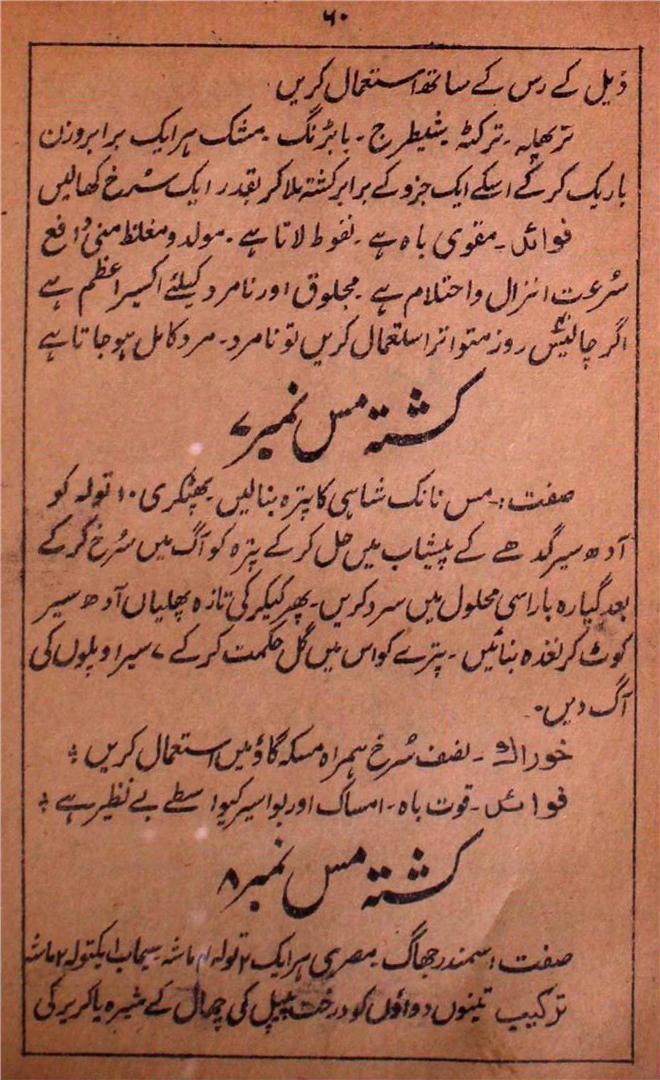 ۶۰
ذیل کے رس کے ساتھ استعمال کریں
ترپھلہ۔ ترکٹہ۔ شیطرج۔ بابڑنگ۔ مشک ہر ایک برابر وزن
باریک کرکے اسکے ایک جزو کے برابر کشتہ ملا کر بقدر ایک سُرخ کھالیں
فوائد۔ مقوی باہ ہے۔ نغوظ لاتا ہے۔ مولد و مغلظ منی و دافع
سُرعت انزال و احتلام ہے۔ مجلوق اور نامرد کیلئے اکسیر اعظم ہے
اگر چالیس روز متواتر استعمال کریں تو نامرد۔ مرد کامل ہو جاتا ہے
کشتہ مس نمبر ۷
صفت:۔ مس نانک شاہی کا پترہ بنالیں۔ پھٹکری ۱۰ تولہ کو
آدھ سیر گدھے کے پیشاب میں حل کرکے پترہ کو آگ میں سُرخ کرکے
بعد گیارہ بار اسی محلول میں سرد کریں۔ پھر کیکر کی تازہ پھلیاں آدھ سیر
کوٹ کر نغدہ بنائیں۔ پترے کو اس میں گل حکمت کرکے ۷ سیر اوپلوں کی
آگ دیں۔
خوراک۔ نصف سُرخ ہمراہ مسکہ گاؤ میں استعمال کریں
فوائد۔ قوت باہ۔ امساک اور بواسیر کیواسطے بے نظیر ہے
کشتہ مس نمبر ۸
صفت: سمندر جھاگ۔ مصری ہر ایک ۲ تولہ ماشہ۔ سیماب ایکتولہ ۲ ماشہ
ترکیب تینوں دوائوں کو درخت پیپل کی چھال کے شیرہ یا کریر کی